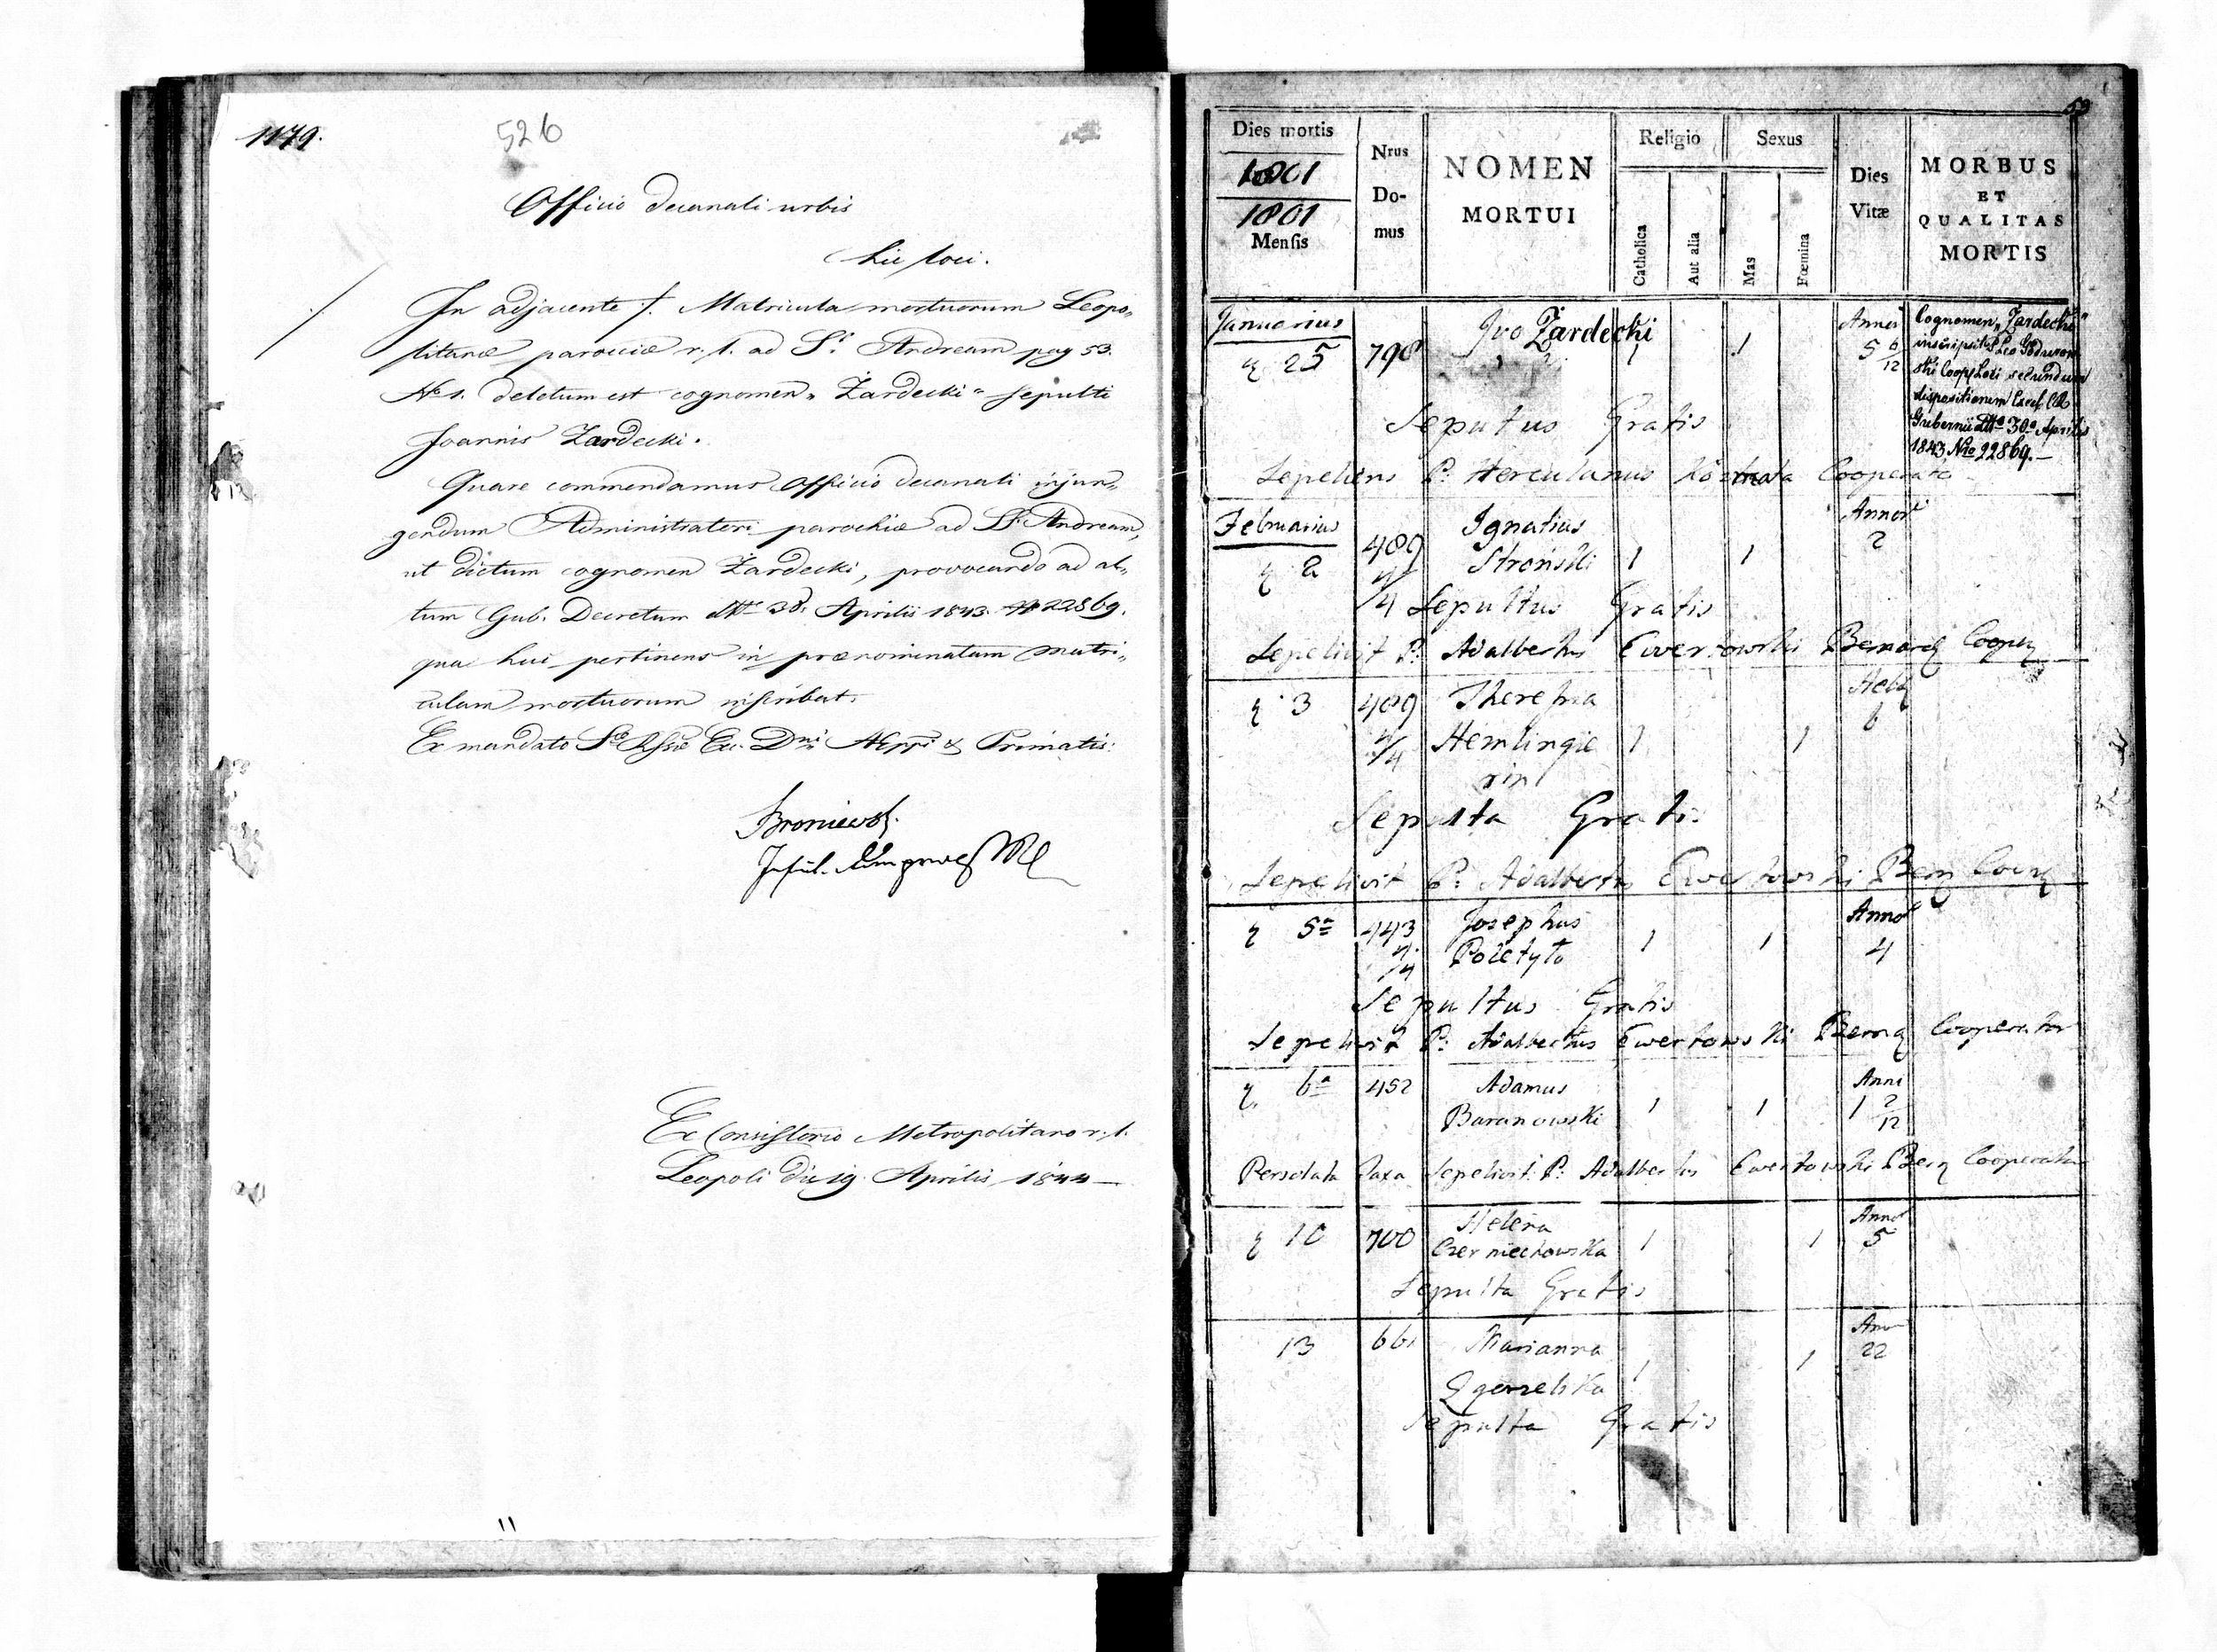 1179.
526
Officio decanali urbis
hic loci.
In adjacente ./. Matricula mortuorum Leopo„
litanæ parociæ r. l. ad St. Andream pag 53.
No 1. deletum est cognomen „Żardecki“ sepulti
Joannis Żardecki.
Quare commendamus Officio decanali injun„
gendum Administratori parochiæ ad St. Andream,
ut dictum cognomen Żardecki, provocando ad al„
tum Gub. Decretum 30. Aprilis 1843. N 22869.
qua huc pertinens in prænominatam matri„
culam mortuorum inscribat.
Ex mandato
Primatis:
Ex Consistorio Metropolitano r. l.
Leopoli die 19. Aprilis 1844
53
Dies mortis
1801
1801
Mensis
Nrus
Do-
mus
NOMEN
MORTUI
Religio
Catholica
Aut alia
Sexus
Mas
Fœmina
Dies
Vitæ
MORBUS
ET
QUALITAS
MORTIS
Januarius
25 798 Ivo Żardecki 1 1 5 6/12
Cognomen „Żardecki“
inscripsit P. Leo
Coop Loci secundum
dispositionem Excel. C.R.
Gubernii 30a Aprilis
1843 Nro 22869.
Seputus Gratis
Sepeliens P: Herculanus
Februarius
2 489 4/4 Ignatius Stroński 1 1 2
Sepultus Gratis
Sepelivit P: Adalbertus Ewertowski
3 489 4/4 Theresia Hemlingie
rin 1 1 6
Sepulta Gratis
Sepelivit P: Adalbertus Ewertowski
5a 443 4/4 Josephus 1 1 4
Sepultus Gratis
Sepelivit P: Adalbertus Ewertowski Cooperator
6a 452 Adamus
Baranowski 1 1 Anni 1 2/12
Persoluta Taxa Sepelivit P: Adalbertus Ewertowski
10 700 Helena 1 1 5
Sepulta Gratis
13 661 Marianna 1 1 22
Sepulta Gratis